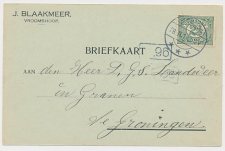 J. BLAAKMEER,
VROOMSHOOP.
BRIEFKAART
96
AAN den Heer L. J. S.
in Granen
te Groningen.